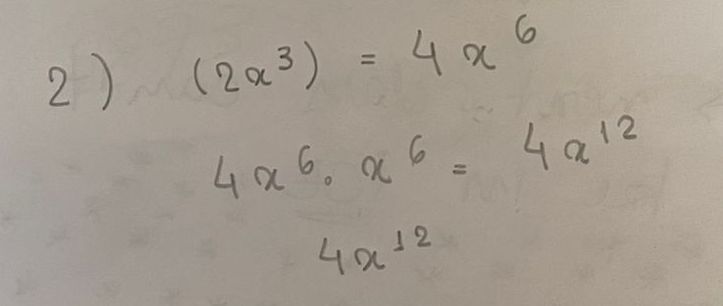 2) (2x³) = 4x⁶
4x⁶ · x⁶ = 4x¹²
4x¹²